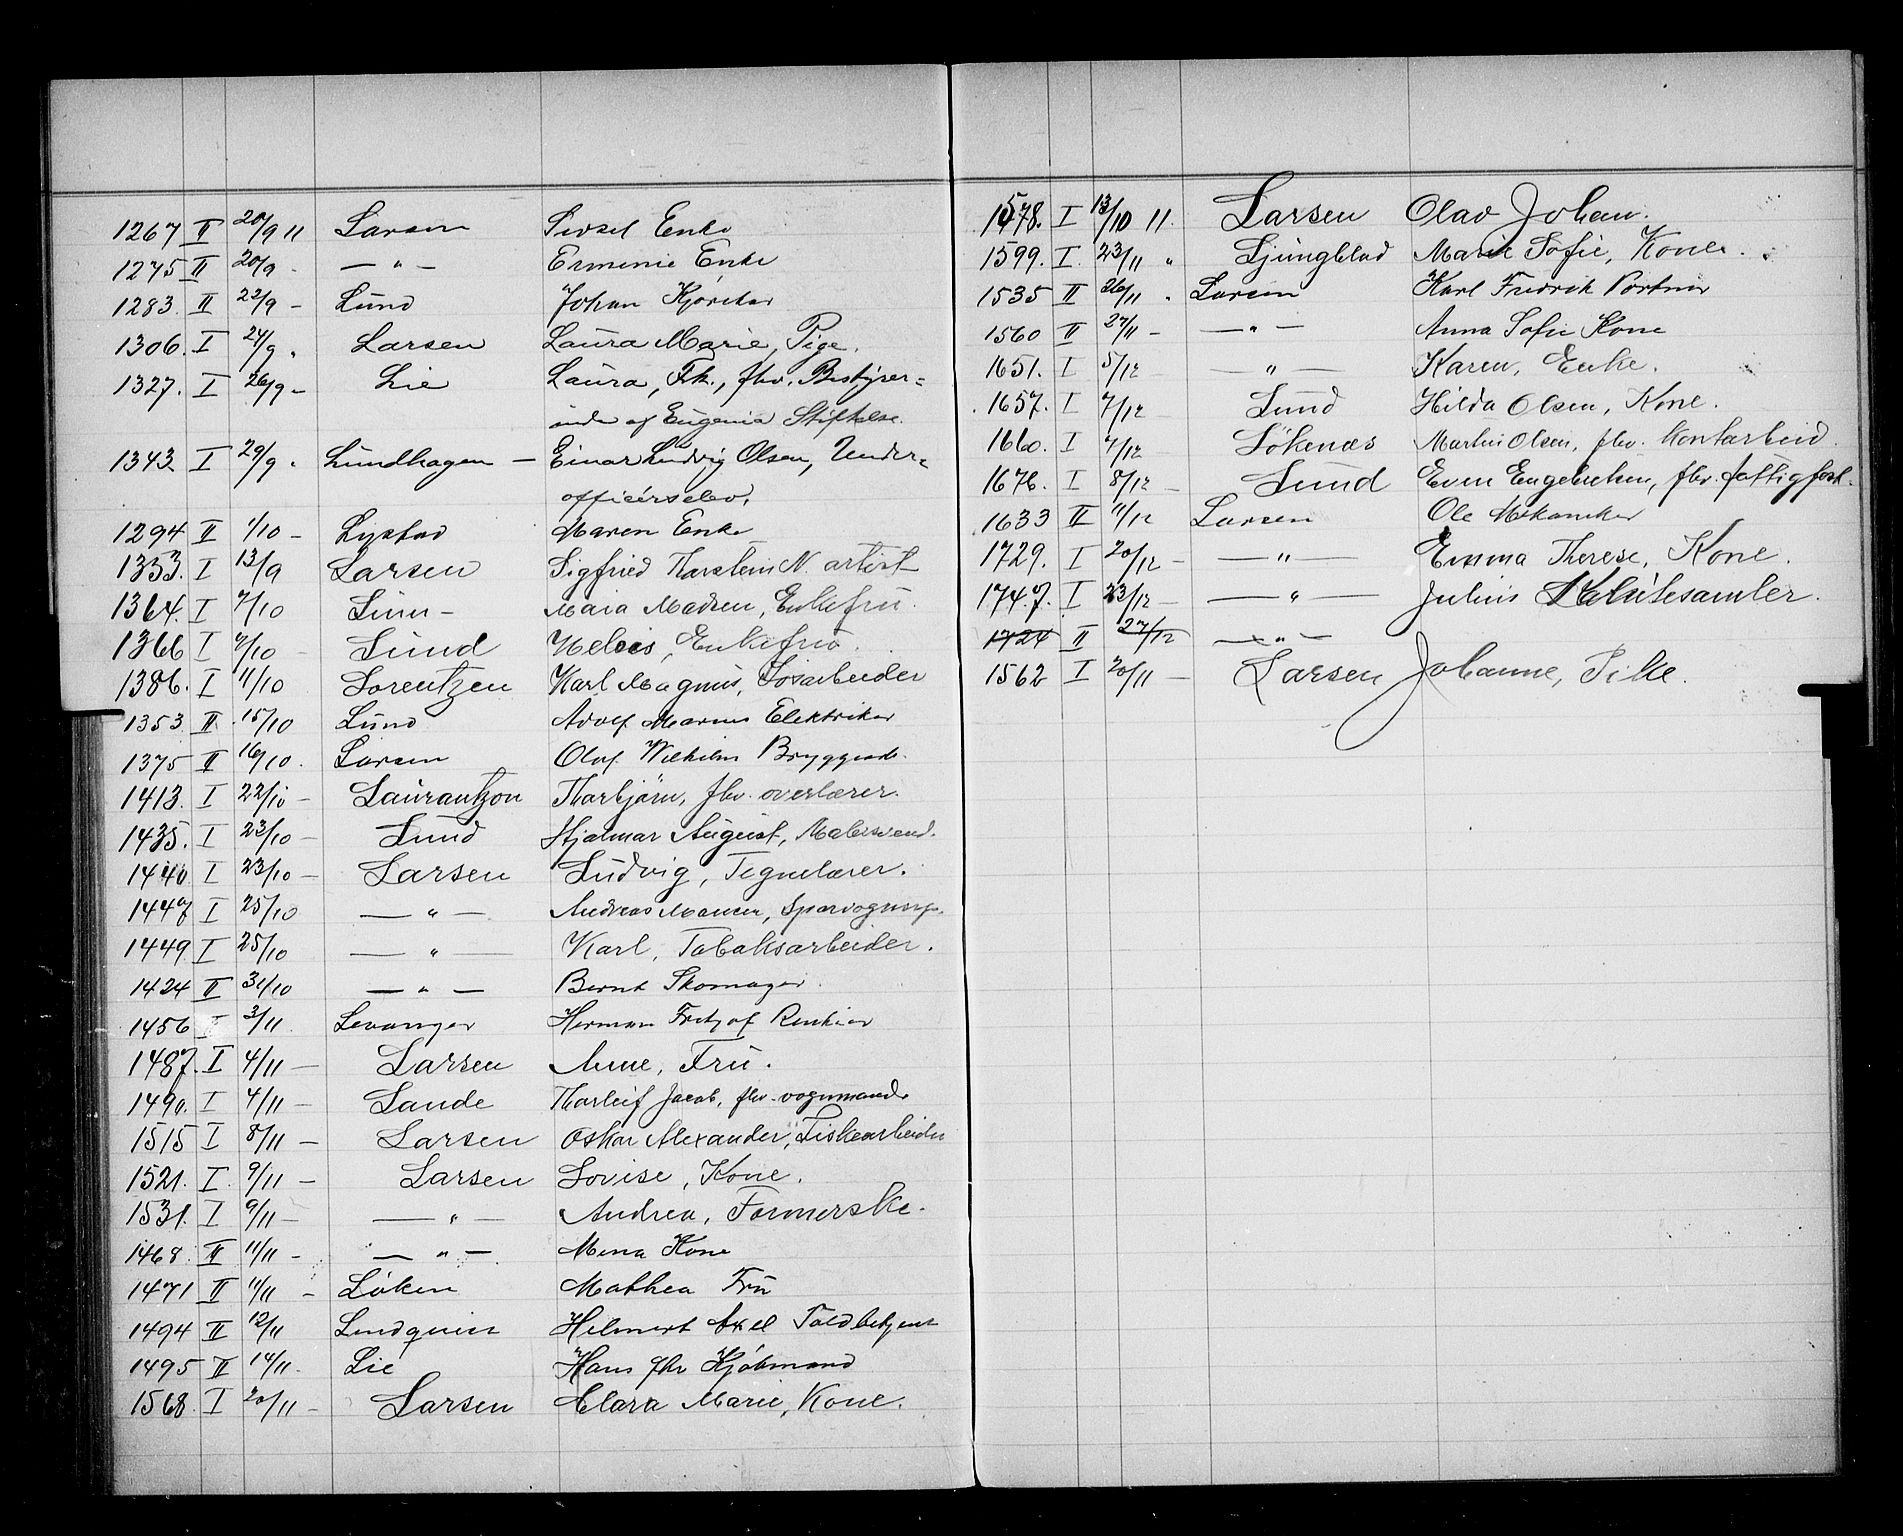 1267 II 20/9 11 Larsen Sirsel Enke
1275 II 20/9 - — " — Ermenie Enke
1283. II 22/9 - Lund Johan Kjørekar
1306. I 24/9 " Larsen Laura Marie, Pige.
1327. I 26/9 - Lie Laura, Frk., fhv. Bestyrer=
inde af Eugenia Stiftelse.
1343 I 29/9 " Lundhagen — Einar Ludvig Olsen, Under=
officerselev.
1294 II 1/10 - Lystad Maren Enke
1333. I 13/9 Larsen Sigfried Thorstein N. artist
1364. I 7/10 Linn - Maia Madsen, Enkefru.
1366 I 9/10 - Lund Enkefru.
1386. I 11/10 Lorentzen Karl Magnus, Løsarbeider
1353 II 15/10 Lund Adolf Marius Elektriker
1375 II 16/10. Larsen Olaf Wilhelm Bryggearb.
1413. I 22/10 - Laurantzon Thorbjørn, fhv. overlærer.
1435. I 23/10 - Lund Hjalmar August, Malersvend.
1440 I 23/10 - Larsen Ludvig, Tegnelærer.
1447 I 25/10 — " — Andreas
1449. I 25/10 — " — Karl, Tobaksarbeider.
1424 II 31/10 — " — Bernt Skomager.
1456 I 3/11 Levanger Herman Fritjof Rentier
1487. I 4/11 - Larsen Anne, Fru.
1490. I 4/11 - Lande Thorleif Jacob, fhv. vognmand
1515 I 8/11 - Larsen Oskar Alexander, Fiskearbeider
1521. I. 9/11 - Larsen Lovise, Kone.
1531. I 9/11 - — " — Andrea, Formerske.
1468. II 11/11 - — " — Mena Kone
1471 II 11/11 - Løken Mathea Fru
1494 II 12/11 Lindquist Helmert Axel Toldbetjent
1495 II 14/11. Lie Hans fhv Kjøbmand
1568. I 20/11 - Larsen Clara Marie, Kone.
1578. I 13/10 11. Larsen Olav Johan.
1599. I. 23/11 " Ljungblad Marie Sofie, Kone.
1535 II 26/11 " Larsen Karl Fredrik Portner
1560 II 27/11 - — " — Anna Sofie Kone
1651. I 5/12 — " — Karen, Enke.
1657. I 7/12 Lund Hilda Olsen, Kone.
1660. I 7/12 Løkenæs Martin Olsen, fhv. Kontorbeid.
1676. I 8/12 - Lund Even Engebretsen, fhv. fattigforst.
1633 II 11/12 Larsen Ole Mekaniker
1729. I 20/12 - — " — Emma Therese, Kone.
1747. I 23/12 - — " — Julius Klutesamler.
1724 II 27/12 — " —
1562 I 20/11 - Larsen Johanne, Pike.